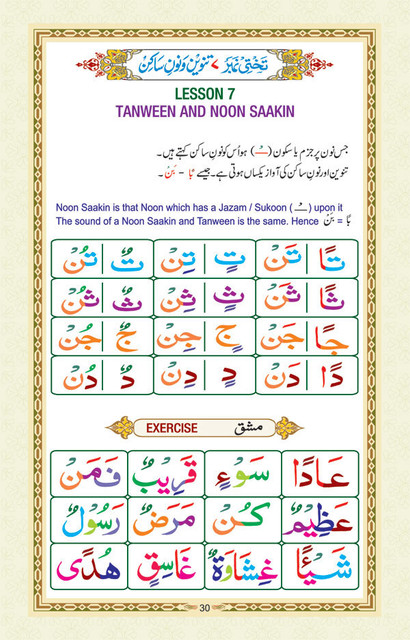 تختی نمبر ۷ تنوین و نون ساکن
LESSON 7
TANWEEN AND NOON SAAKIN
جس نون پر جزم یا سکون (ـْـ) ہو اُس کو نونِ ساکن کہتے ہیں۔
تنوین اور نونِ ساکن کی آواز یکساں ہوتی ہے۔ جیسے بًا - بَنْ۔
Noon Saakin is that Noon which has a Jazam / Sukoon (ـْـ) upon it
The sound of a Noon Saakin and Tanween is the same. Hence بَنْ = بًا
تًا تَنْ تٍ تِنْ تٌ تُنْ
ثًا ثَنْ ثٍ ثِنْ ثٌ ثُنْ
جًا جَنْ جٍ جِنْ جٌ جُنْ
دًا دَنْ دٍ دِنْ دٌ دُنْ
EXERCISE مشق
عَادًا سَوْءٍ قَرِيْبٌ فَمَنْ
عَظِيْمٌ كُنْ مَرَضٌ رَسُوْلٌ
شَيْئًا غِشَاوَةٌ غَاسِقٍ هُدًى
30